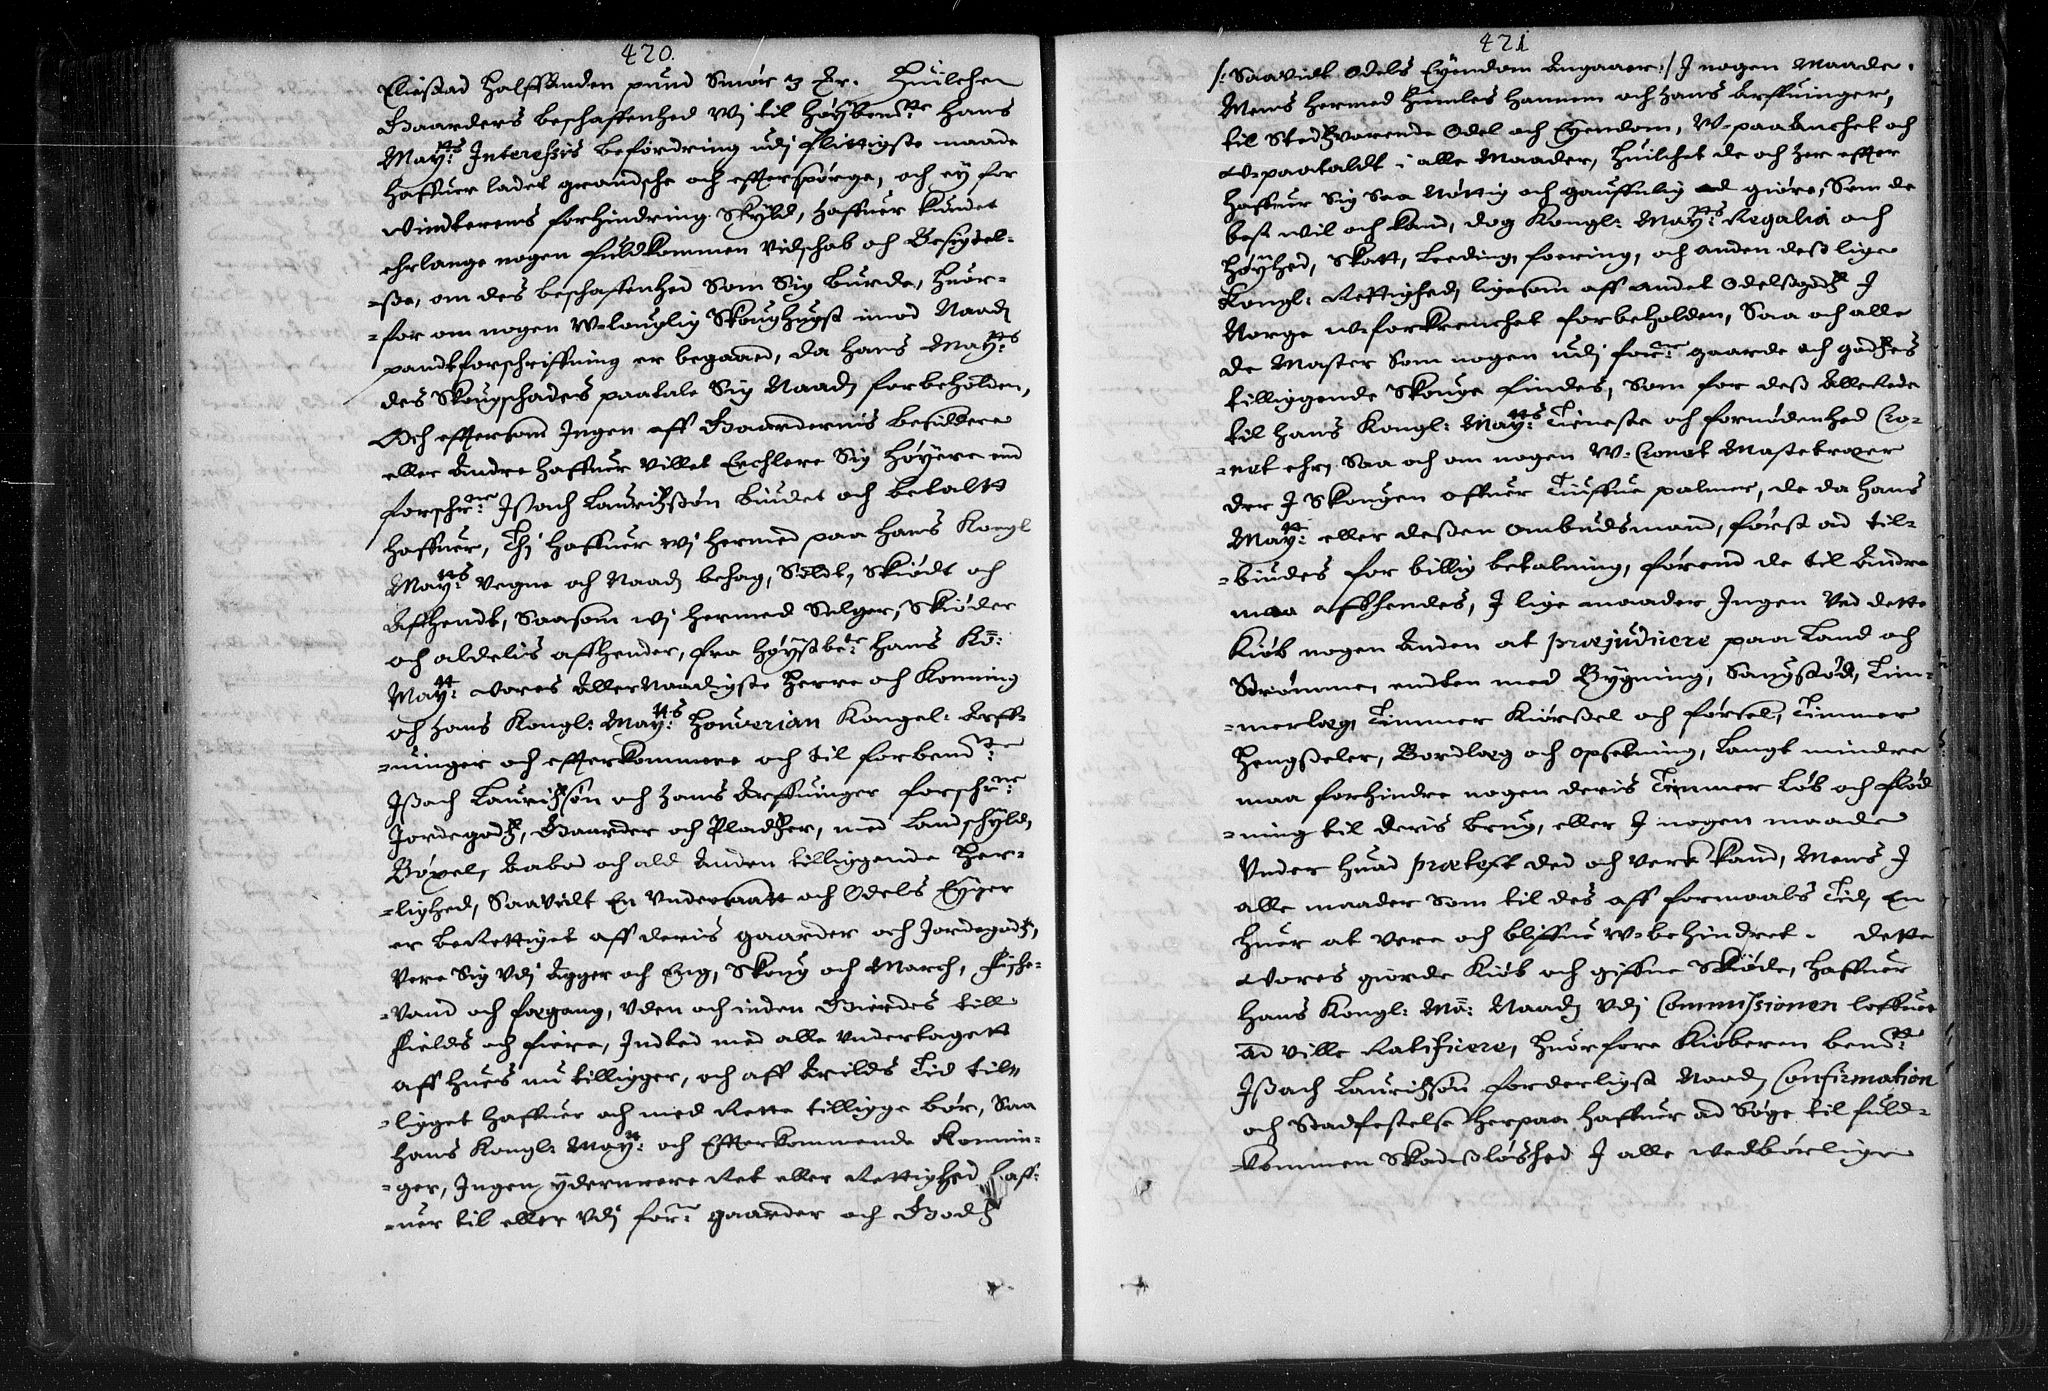 420.
Eliestad Halffanden pund Smør 3 Ar. Huilchen
Gaarders beschaffenhed Wj til Høybemte Hans
Mayts Interessis befordring udj flittigste maade
Haffuer ladet grandsche och efterspørge, och ey for
Vindterens forhindring Skyld, Haffuer kundet
erlange nogen fuldkommen Vidschab och Besigtel-
-se, om des beschaffenhed Som Sig burde, Huor-
-for om nogen W-louglig Skoughugst imod Naadj
pandtforschriffning er begaaed, da Hans Mayts
des Skougschades paatale Sig Naadj forbeholden,
Och efftersom Ingen aff Gaardernis besiddere
eller Andre Haffuer Villet Erchlere Sig Høyere end
forschrne Issach Lauridssøn biudet och betaltt
Haffuer, Thj Haffuer wj hermed paa Hans Kongl
Mayts Vegne och Naadj behag, Soldt, Skiødt och
Affhendt, Saasom wj hermed Selger, Skiøder
och aldelis affhender, fra Høystbete Hans Ko:
Maytt Vores AllerNaadigste Herre och Konning
och Hans Kongl: Mayts Souverian Kongel: Arff-
-uinger och effterkommere och til forbemte
Issach Lauridssøn och Hans Arffuinger forschrne
Jordegodtz, Gaarder och Pladtzer, med Landschyld,
Bøxel, Aabod och ald Anden tilliggende Her-
-lighed, Saavidt En Vndersaatt och Odels Eyger
er beRettiget aff deris gaarder och Jordegodtz,
Vere Sig Vdj Agger och Eng, Skoug och March, Fische-
-Vand och fægang, Vden och inden Gierdes till
Fields och fiere, Indted med alle Vndertagett
aff Hues nu tilligger, och aff Arilds Tid til-
-ligget Haffuer och med Rette tilligge bør, Saa
Hans Kongl: Maytt och Efterkommende Konnin-
-ger, Ingen ydermere Ret eller Rettighed Haff-
-uer til eller Vdj forne gaarder och Godtz
421
/: Saavidt Odels Eyendom Angaaer:/ J nogen Maade.
Mens hermed Hiemles Hannem och Hans Arffuinger,
til Stedtzvarende Odel och Eyendom, W-paaAnchet och
W-paataldt i alle Maader, Huilchet de och her effter
Haffuer Sig Saa Nøttig och gauffnlig ad giøre, Som de
best wil och kand, dog Kongl: Mayts Regalia och
Høyhed, Skatt, Leeding, foering, och anden deslige
Kongl: Rettighed, ligesom aff andet Odelsgodtz J
Norge W-forkrenchet forbeholden, Saa och alle
de Master Som nogen udj forne gaarde och godtzes
tilliggende Skouge findes, Som for dess Allerede
til Hans Kongl: Mayts Tieneste och fornødenhed Cro-
-net ehr, Saa och om nogen W-Cronet Mastetræer
der J Skougen offuer Tiuffue palmer, de da Hans
Maytt eller dessen Ombudsmand, først ad til-
-biudes for billig betalning, førend de til Andre
maa affhendes, J lige maader Ingen Ved dette
Kiøb nogen Anden at præjudicere paa Land och
Strømmen endten med Bygning, Saugstød, Tim-
-merlæg, Timmer Kiørssel och førsel, Timmer
Hengsseler, Bordlæg och opsetning, Langt mindre
maa forhindre nogen deris Timmer Løb och flød
-ning til deris brug, eller J nogen maade
Vnder Huad prætext ded och Vere kand, Mens J
alle maader Som til des aff formaals Tid, En
Huer at Vere och bliffue W-behindret. Dette
Vores giorde Kiøb och giffne Skiøde, Haffuer
Hans Kongl: Ma: Naadj Vdj Commissionen loffuet
ad Ville Ratificere, Huorfore Kiøberen bemte
Issach Lauridssøn forderligst Naadj Confirmation
och Stadfestelse Herpaa Haffuer ad Søge til fuld-
-kommen Skadisløshed J alle Wedbørlige